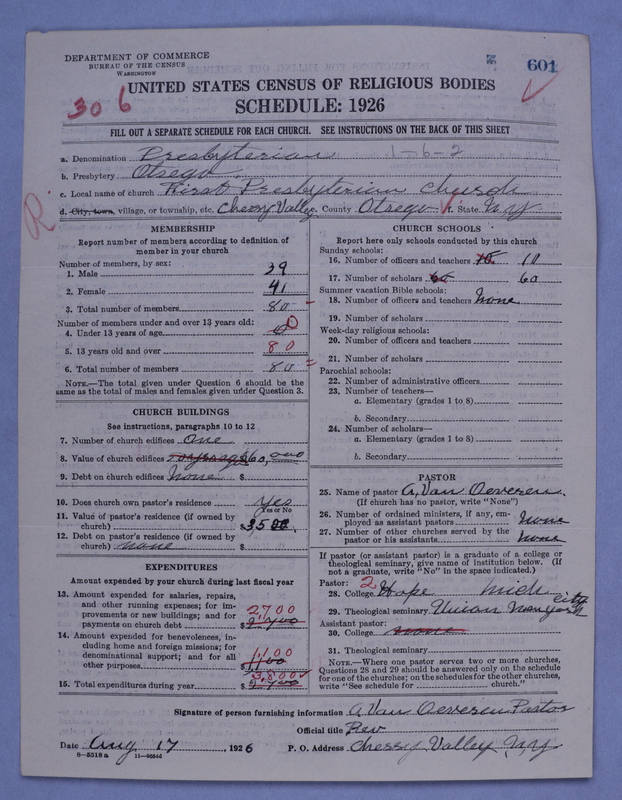 DEPARTMENT OF COMMERCE
BUREAU OF THE CENSUS
WASHINGTON
601
306
UNITED STATES CENSUS OF RELIGIOUS BODIES
SCHEDULE: 1926
FILL OUT A SEPARATE SCHEDULE FOR EACH CHURCH. SEE INSTRUCTIONS ON THE BACK OF THIS SHEET
a. Denomination Presbyterian 1-6-2
b. Presbytery Otsego
c. Local name of church First Presbyterian Church
R
d. City, town, village, or township, etc. Cherry Valley e. County Otsego f. State N.Y
MEMBERSHIP
Report number of members according to definition of
member in your church
Number of members, by sex:
1. Male 39
2. Female 41
3. Total number of members 80
Number of members under and over 13 years old:
4. Under 13 years of age 0
5. 13 years old and over 80
6. Total number of members 80
NOTE.—The total given under Question 6 should be the
same as the total of males and females given under Question 3.
CHURCH BUILDINGS
See instructions, paragraphs 10 to 12
7. Number of church edifices One
8. Value of church edifices $60,000
9. Debt on church edifices None $
10. Does church own pastor's residence Yes
Yes or No
11. Value of pastor's residence (if owned by
church) $3500.
12. Debt on pastor's residence (if owned by
church) none $
EXPENDITURES
Amount expended by your church during last fiscal year
13. Amount expended for salaries, repairs,
and other running expenses; for im-
provements or new buildings; and for
payments on church debt $ 2700
14. Amount expended for benevolences, in-
cluding home and foreign missions; for
denominational support; and for all
other purposes $ 1100
15. Total expenditures during year $ 3,800
CHURCH SCHOOLS
Report here only schools conducted by this church
Sunday schools:
16. Number of officers and teachers 10
17. Number of scholars 60
Summer vacation Bible schools:
18. Number of officers and teachers None
19. Number of scholars
Week-day religious schools:
20. Number of officers and teachers
21. Number of scholars
Parochial schools:
22. Number of administrative officers
23. Number of teachers—
a. Elementary (grades 1 to 8)
b. Secondary
24. Number of scholars—
a. Elementary (grades 1 to 8)
b. Secondary
PASTOR
25. Name of pastor A. Van Oeveren.
(If church has no pastor, write "None")
26. Number of ordained ministers, if any, em-
ployed as assistant pastors None
27. Number of other churches served by the
pastor or his assistants none
If pastor (or assistant pastor) is a graduate of a college or
theological seminary, give name of institution below. (If
not a graduate, write "No" in the space indicated.)
Pastor: 2
28. College Hope Mich
29. Theological seminary Union New York City
Assistant pastor:
30. College none
31. Theological seminary
NOTE.—Where one pastor serves two or more churches,
Questions 28 and 29 should be answered only on the schedule
for one of the churches; on the schedules for the other churches,
write "See schedule for church."
Signature of person furnishing information A Van Oeveren Pastor
Official title Rev
Date Aug 17 1926 P. O. Address Cherry Valley N.Y
8—5518a